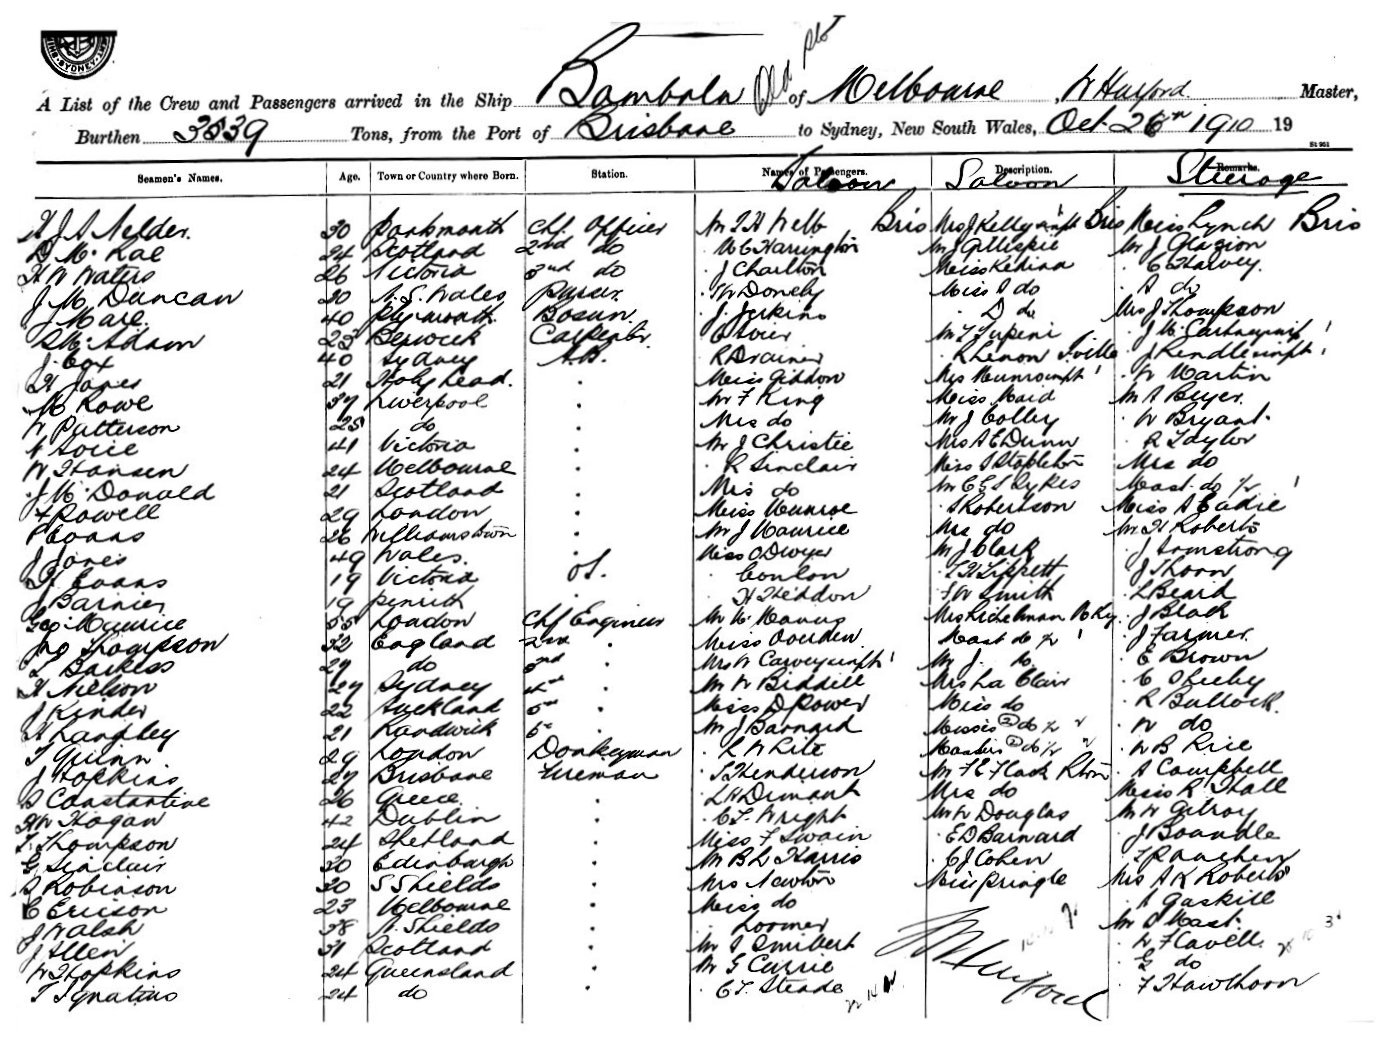 SYDNEY
Old
A List of the Crew and Passengers arrived in the Ship Bombala of Melbourne, W Hurford Master,
Burthen 3539 Tons, from the Port of Brisbane to Sydney, New South Wales, Oct 26th 1910 19
St 951
Seamen's Names. Age. Town or Country where Born. Station. Names of Passengers. Description. Remarks.
Saloon Saloon Steerage
H J A Nelder. 30 Chf. Officer Mr T H Webb Bris Mrs J Kelly & inft 1 Bris Miss Lynch Bris
D McRae 24 Scotland 2nd do W C Harrington Mr J Gillespie Mr J Glazion
H W Waters 26 Victoria 3rd do J Charlton Miss C Harvey.
J M Duncan 30 N. S. Wales Purser W Donely Miss A do A do
J Mare. 40 Plymouth Bosun. J. Jerkins D do Mrs J Thompson
D McAdam 23 Berwick Carpenter Mr T J McCartney & inft 1
J. Cox 40 Sydney A.B. R Drainer J Kendle & inft 1
H Jones 21 Holyhead. Miss Giddon Mrs Munro & inft 1 W Martin
M Rowe 37 Liverpool Mr F King Miss Maid Mr A Beyer.
W Patterson 25 do Mrs do Mr J Colley W Bryant.
41 Victoria Mr J Christie Mrs A E Dunn R Taylor
W Hansen 24 Melbourne R Sinclair Miss S Stapleton Mrs do
J McDonald 21 Scotland Mrs do Mr C G S Sykes Mast. do 1/2 1
F Powell 29 London Miss Munroe A Robertson Miss A Eadie
P Evans 26 Williamstown Mr J Maurice Mrs do Mr H Roberts
J Jones 49 Wales. Miss O'Dwyer Mr J Clark J Armstrong
H Evans 19 Victoria O.S. Conlon T H Tippett J Thorn
J Barnier 19 Penrith H Heddon F W Smith L Beard
Geo. Maurice 55 London Chf Engineer Mr McManus Mrs Richelman J Black
Jno Thompson 32 England 2nd Miss Mast do 1/2 1 J Farmer.
T Barkess 29 do 3rd Mrs W Carvey & inft 1 Mr J. do E Brown
H Nielson 27 Sydney 4th Mr W Biddill Mrs La Clair C Sheehy
J Kinder 22 Auckland 5th Miss D Power Miss do R Bullock.
H Langley 21 Randwick 6th Mr J Barnard Misses 2 do 1/2 W do
T Quinn 29 London Donkeyman L White Masters 2 do 1/2 W B Rice
J Hopkins 27 Brisbane Fireman T Henderson Mr F E Flack Rhton A Campbell
A Constantine 26 Greece. L H Dimant Mrs do Miss R Hall
H W Hogan 42 Dublin C T. Wright Mr W Douglas Mr W Gilroy
T. Thompson 24 Shetland Miss F Swain E D Barnard J Boandle
G Sinclair 30 Edinburgh Mr B L Harris C J Cohen
A Robinson 30 S Shields Mrs Newton Miss Pringle Mrs A K Roberts
C Ericson 23 Melbourne Miss do A Gaskill
J Walsh 38 N. Shields Loomer Mr D Mast.
J Allen 31 Scotland Mr A Smibert W Flavell
W Hopkins 24 Queensland Mr G Currie W Hurford G do
T Ignatius 24 do C T. Steade F Hawthorn